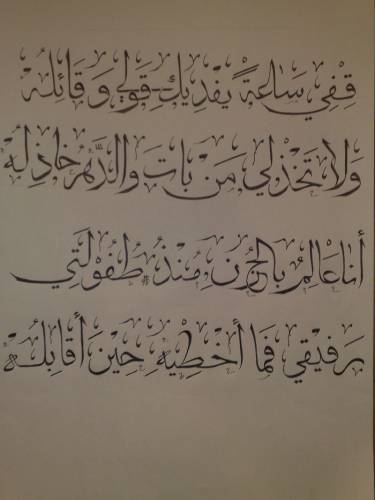 قِفِي سَاعَةً يَفْدِيكِ قَوْلِي وَقَائِلُهْ
وَلَا تَخْذِلِي مَنْ بَاتَ وَالدَّهْرُ خَاذِلُهْ
أَنَا عَالِمٌ بِالحُزْنِ مُنْذُ طُفُولَتِي
رَفِيقِي فَمَا أُخْطِيهِ حِينَ أُقَابِلُهْ